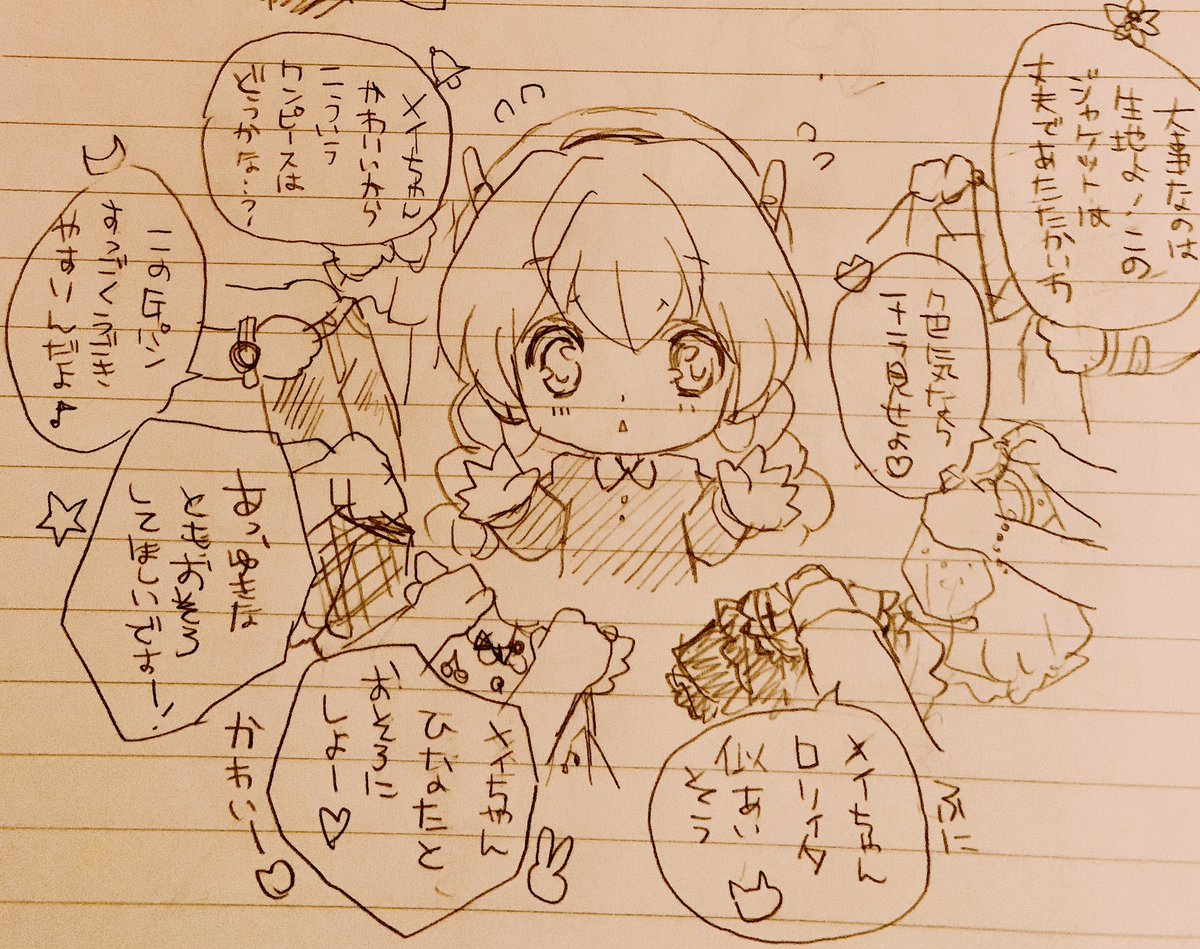 大事なのは
生地よ、この
ジャケットは
丈夫であたたかいわ
メイちゃん
かわいいから
こういう
ワンピースは
どうかな…?
すっごくうごき
やすいんだよ♪
おっ
とまおそろ
してほしいでせー!
メイちゃん
ひなたと
おそろに
しよー♡
かわいー
メイちゃん
ロリィタ
似あい
そう
ふに